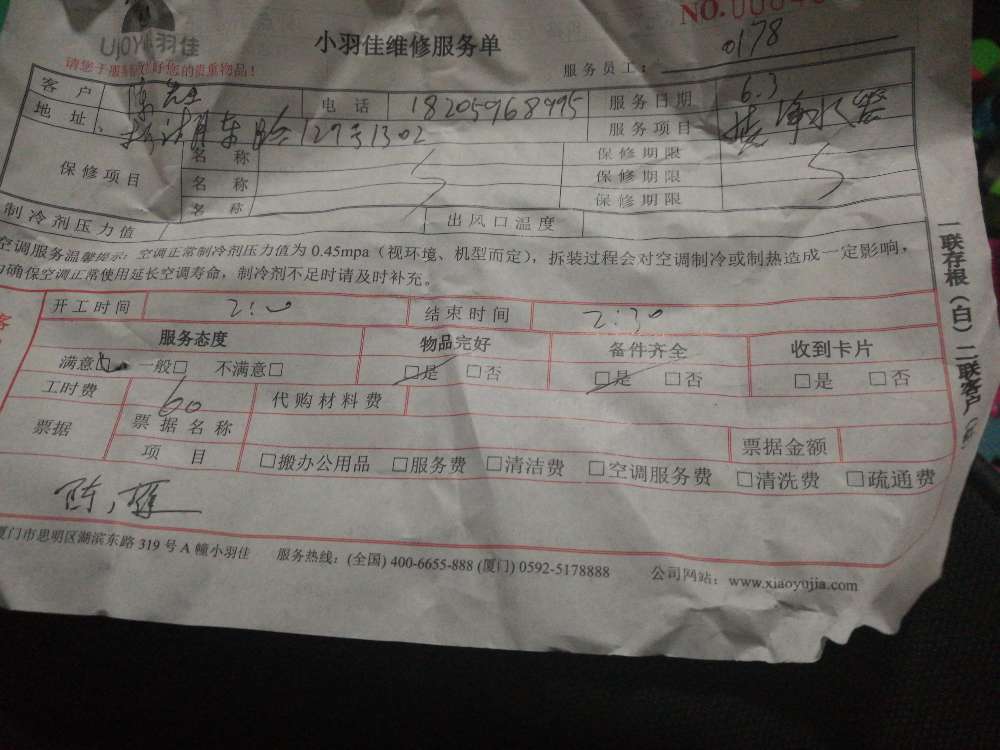 NO.
UJOY小羽佳
小羽佳维修服务单
服务员工: 0178
请您于服务 好您的贵重物品!
客户 先生 电话 18205968995 服务日期 6.3
地址 127号1302 服务项目 接净水器
保修项目 名称 保修期限
名称 保修期限
名称 保修期限
制冷剂压力值 出风口温度
空调服务温馨提示: 空调正常制冷剂压力值为 0.45mpa (视环境、机型而定), 拆装过程会对空调制冷或制热造成一定影响,
为确保空调正常使用延长空调寿命, 制冷剂不足时请及时补充。
开工时间 2:00 结束时间 2:30
服务态度 物品完好 备件齐全 收到卡片
满意□ 一般□ 不满意□ □是 □否 □是 □否 □是 □否
工时费 60 代购材料费
票据 票据名称 票据金额
项目 □搬办公用品 □服务费 □清洁费 □空调服务费 □清洗费 □疏通费
厦门市思明区湖滨东路 319 号 A 幢小羽佳 服务热线: (全国) 400-6655-888 (厦门) 0592-5178888 公司网站: www.xiaoyujia.com
一联存根(白) 二联客户